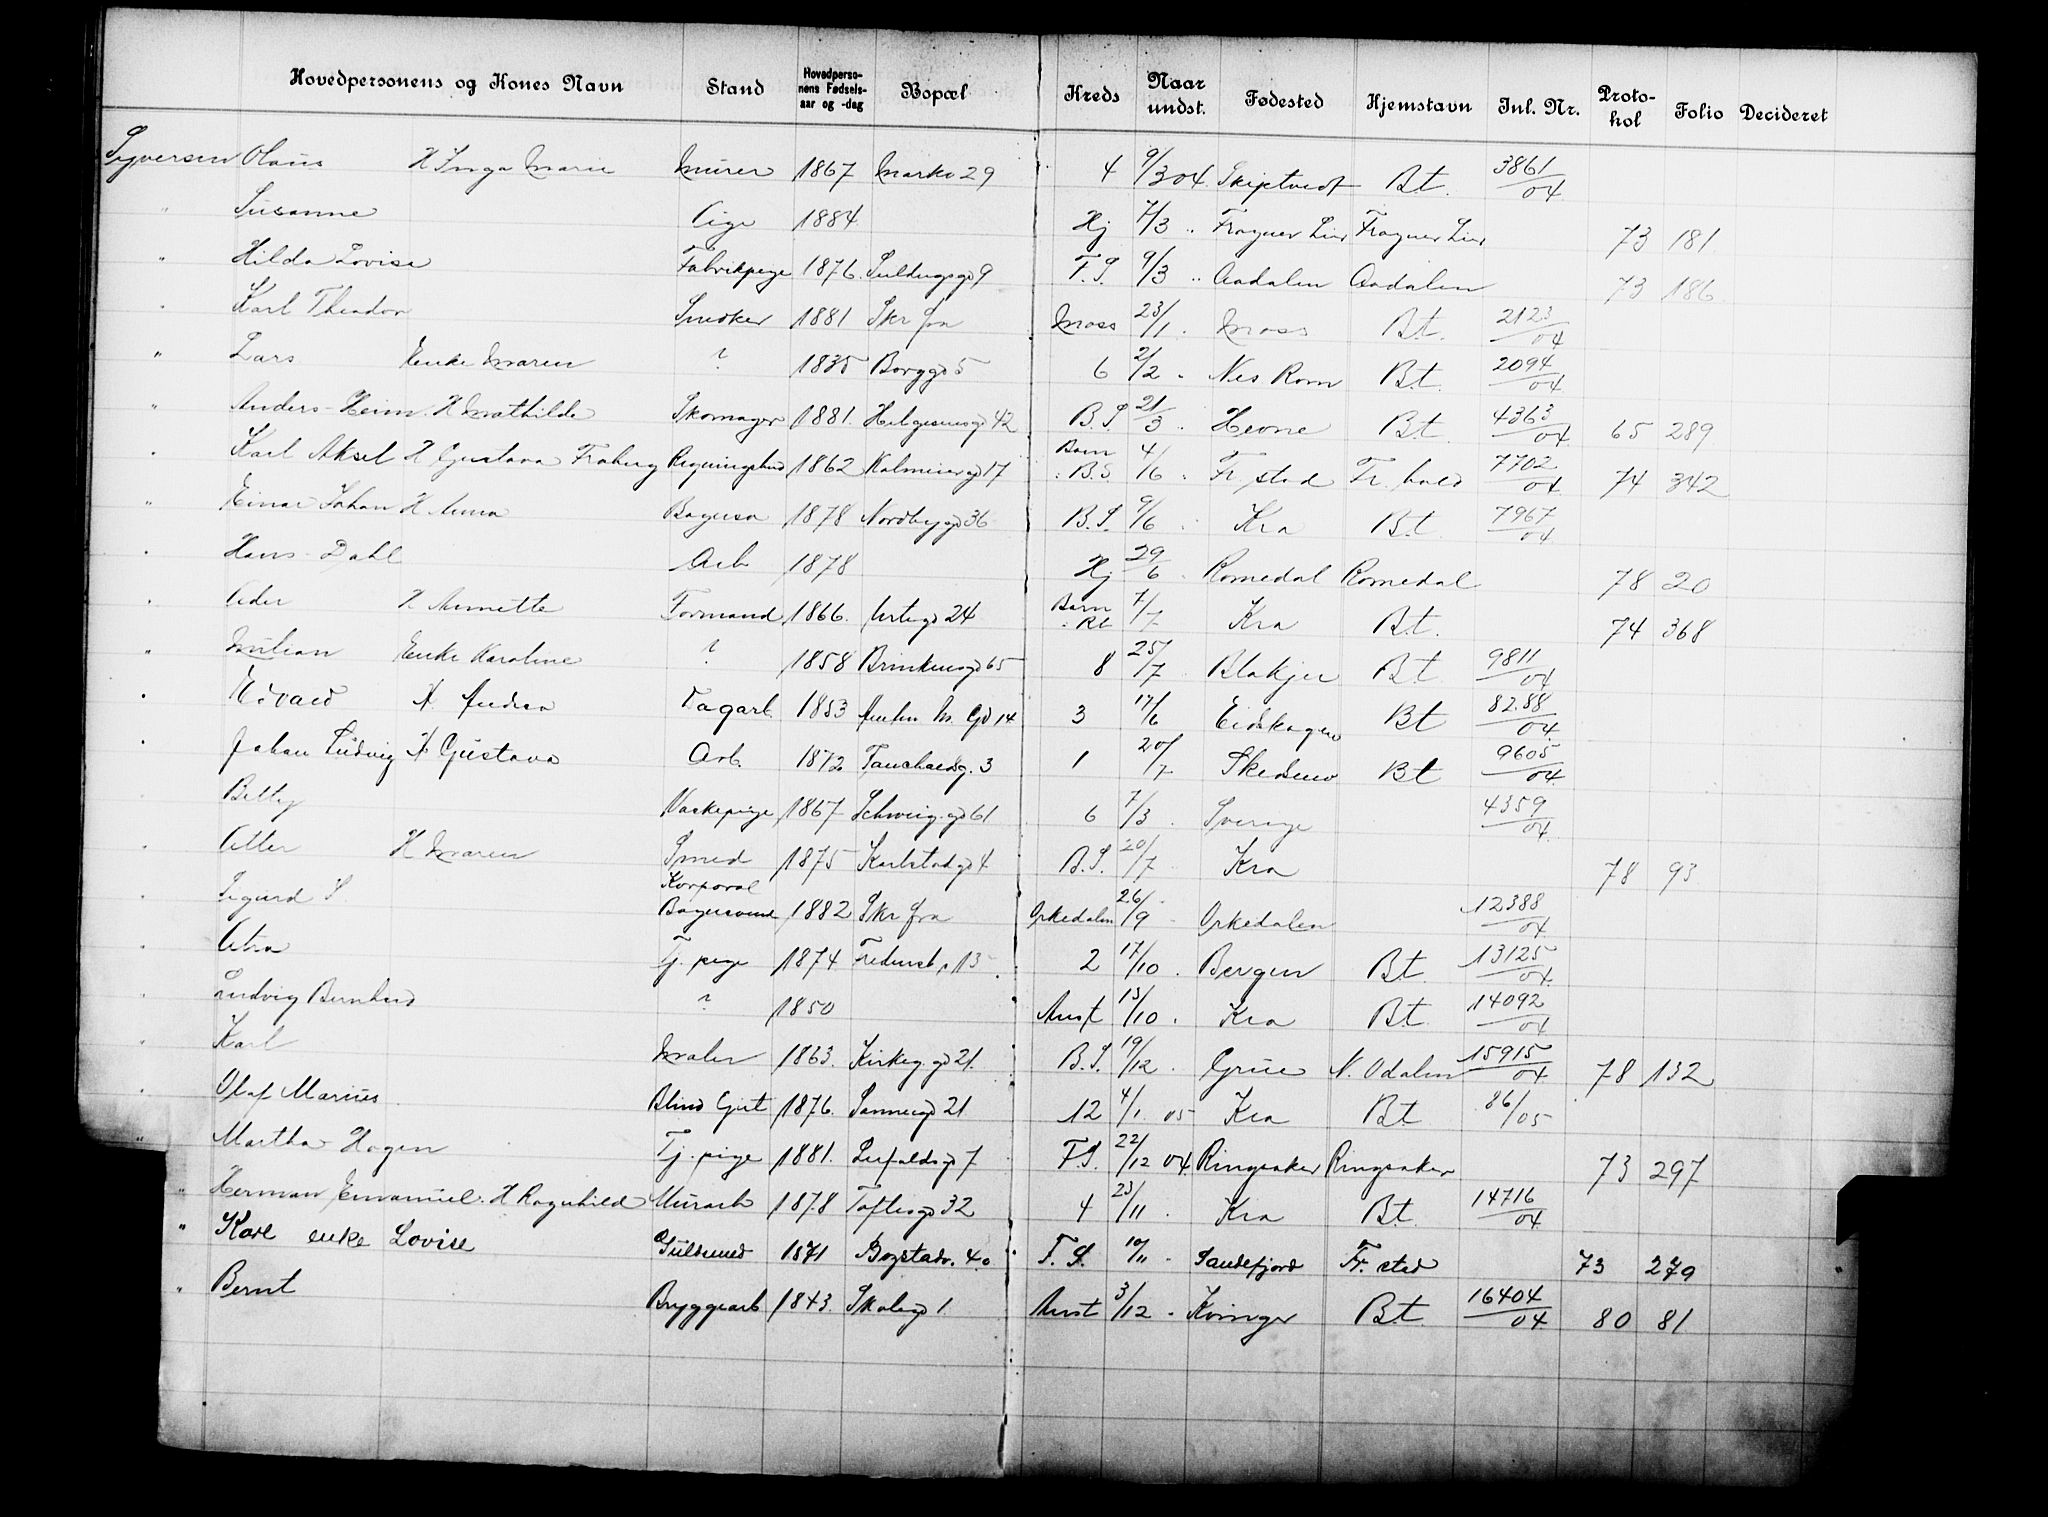 Hovedpersonens og Kones Navn Stand Hovedpersonens Fødselsaar og -dag Bopæl Kreds Naar undst. Fødested Hjemstavn Jnl. Nr. Protokol Folio Decideret
Syversen Olaus H Inga Marie Murer 1867 Markv 29 4 9/3 04. Skiptvedt Bt. 3861/04
" Susanne Pige 1884 Hj 7/3 " Frogner Lier Frogner Lier 73 181
" Hilda Lovise Fabrikpige 1876. 9 F.S. 9/3 " Aadalen Aadalen 73 186
" Karl Theodor Snedker 1881 Skr fra Moss 23/1 . Moss Bt. 2123/04
" Lars Enke Maren ? 1835 Borggd 5 6 2/2 " Nes Rom Bt. 2094/04
" Anders Heim. H Mathilde Skomager 1881. Helgesensgd 42 B.S. 21/3 . Hevne Bt. 4363/04 65 289
" Karl Aksel H Gustava Froberg Regningsbud 1862 Kalmeiergd 17 Barn : B.S. 4/6 . Fr. stad Fr. hald 7702/04 74 342
" Einar Johan H Anna Bagersv 1878 Nordbygd 36 B.S. 9/6 . Kra Bt. 7967/04
" Hans Dahl Arb 1878 Hj 29/6 . Romedal Romedal 78 20
" Peder H Annette Formand 1866. Urtegd 24 Barn : Rt 7/7 Kra Bt. 74 368
" Julian Enke Karoline ? 1858 Brinkensgd 65 8 25/7 Blakjer Bt 9811/04
" Edvard H Andrea Dagarb. 1853 14 3 17/6 Eidskogen Bt 8288/04.
" Johan Ludvig H Gustava Arb. 1872 Fauchaldsg. 3 1 20/7 Skedsmo Bt 9605/04.
" Betty Vaskepige 1867 Schweig.gd 61 6 7/3 . Sverige 4359/04.
" Petter H Maren Smed 1875 Karlstadgd 4 B.S. 20/7 Kra 78 93
" Sigurd S Korporal Bagersvend 1882 Skr fra Orkedalen 26/9 . Orkedalen 12388/04.
" Petra Tj. pige 1874 Fredensb. 13 2 17/10 . Bergen Bt. 13125/04.
" Ludvig Bernhard ? 1850 Anst 13/10 . Kra Bt. 14092/04
" Karl Maler 1863. Kirkeg gd 21. B.S. 19/12 . Grue N. Odalen 15915/04 78 132
" Olaf Marius Blind Gut 1876. Sannergd 21 12 4/1. 05 Kra Bt. 86/05
" Martha Hagen Tj. pige 1881. Leirfaldsgd 7 F.S. 22/12 04. Ringsaker Ringsaker 73 297
" Herman Emanuel. H Ragnhild Murarb 1878 Toftesgd 32 4 23/11 . Kra Bt. 14716/04.
" Karl enke Lovise Guldsmed 1871 Bogstadv. 40 F.S. 10/11 . Sandefjord Fr. stad 73 279
" Bernt Bryggearb 1843. Skolegd 1. Anst 3/12 . Kvinger Bt. 16404/04. 80 81